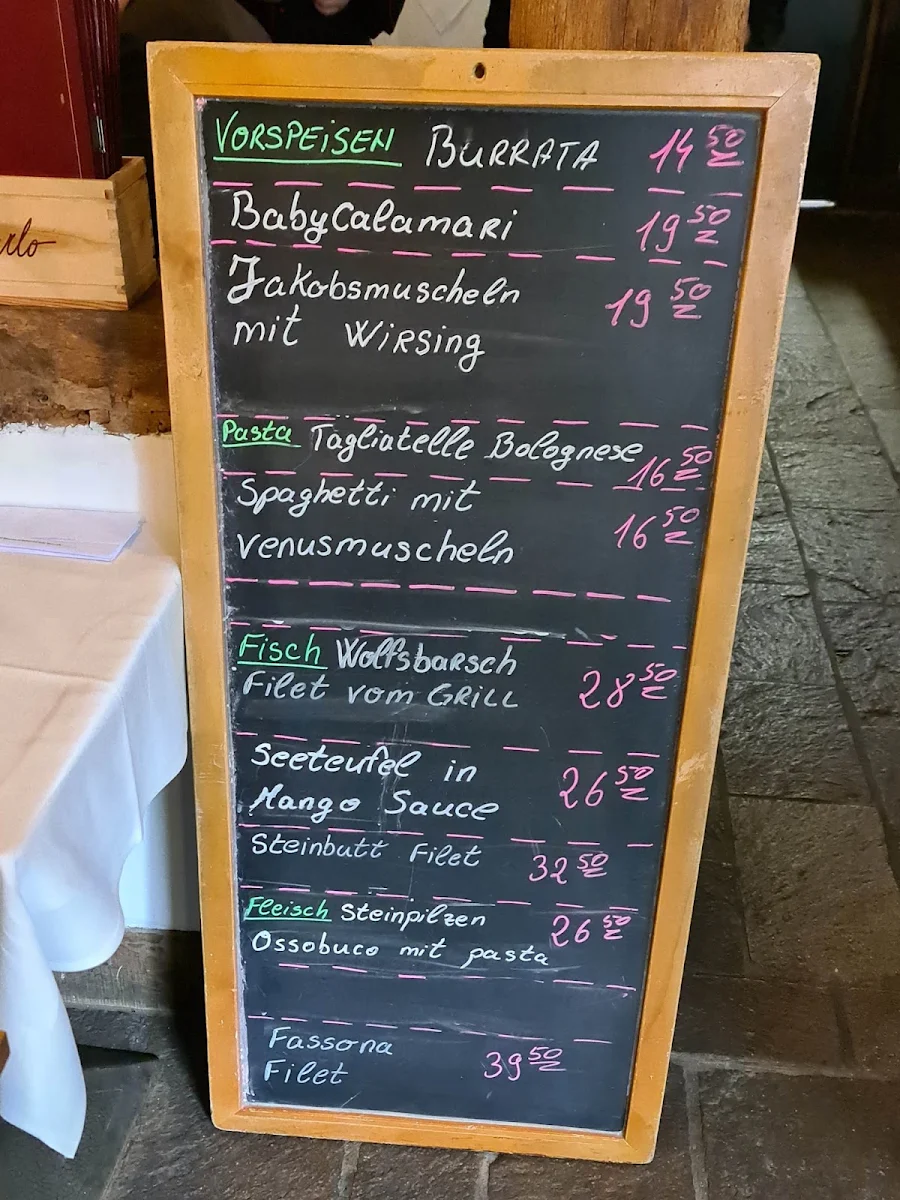 VORSPEISEN BURRATA 14 50
BabyCalamari 19 50
Jakobsmuscheln 19 50
mit Wirsing
Pasta Tagliatelle Bolognese
16 50
Spaghetti mit 16 50
venusmuscheln
Fisch Wolfsbarsch
Filet vom GRILL 28 50
Seeteufel in 26 50
Mango Sauce
Steinbutt Filet 32 50
Fleisch Steinpilzen 26 50
Ossobuco mit pasta
Fassona 39 50
Filet